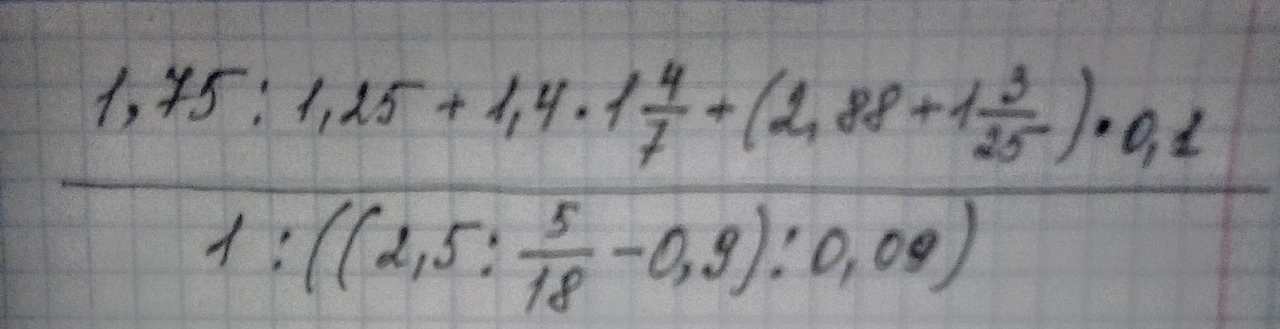 1,75 : 1,25 + 1,4 · 1 4/7 + (2,88 + 1 3/25) · 0,1
1 : ((2,5 : 5/18 − 0,9) : 0,09)